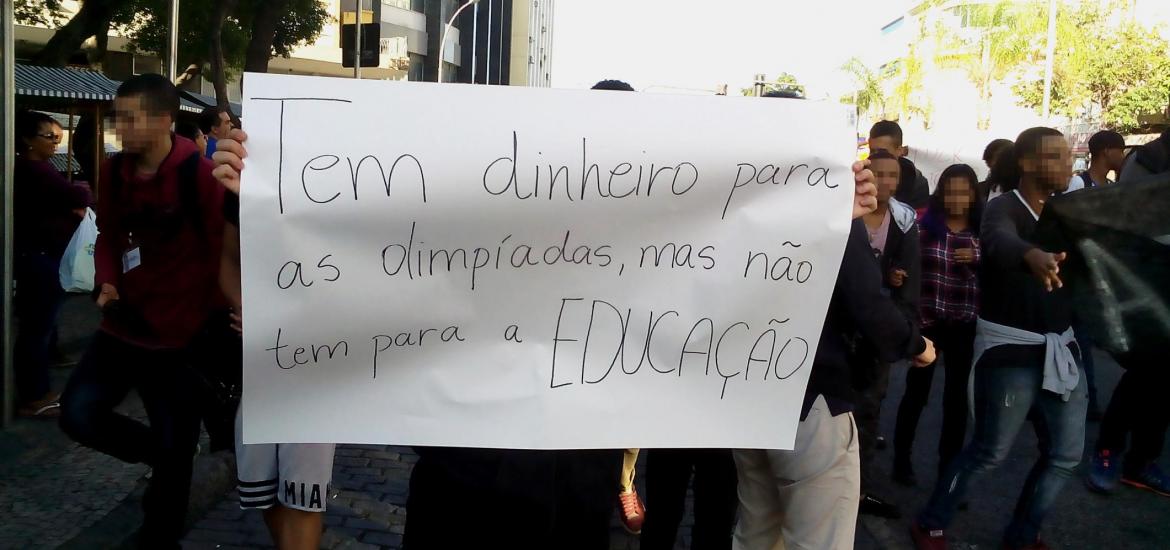 Tem dinheiro para
as olimpíadas, mas não
tem para a EDUCAÇÃO
MIA